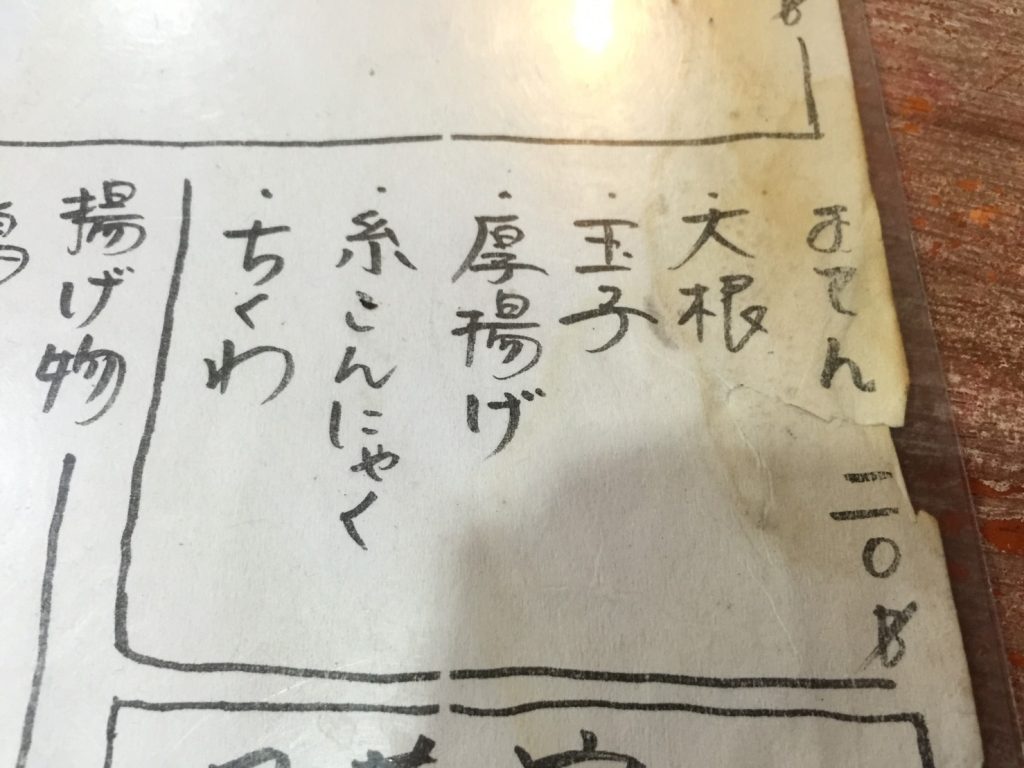 おでん 三〇฿
・大根
・玉子
・厚揚げ
・糸こんにゃく
・ちくわ
揚げ物